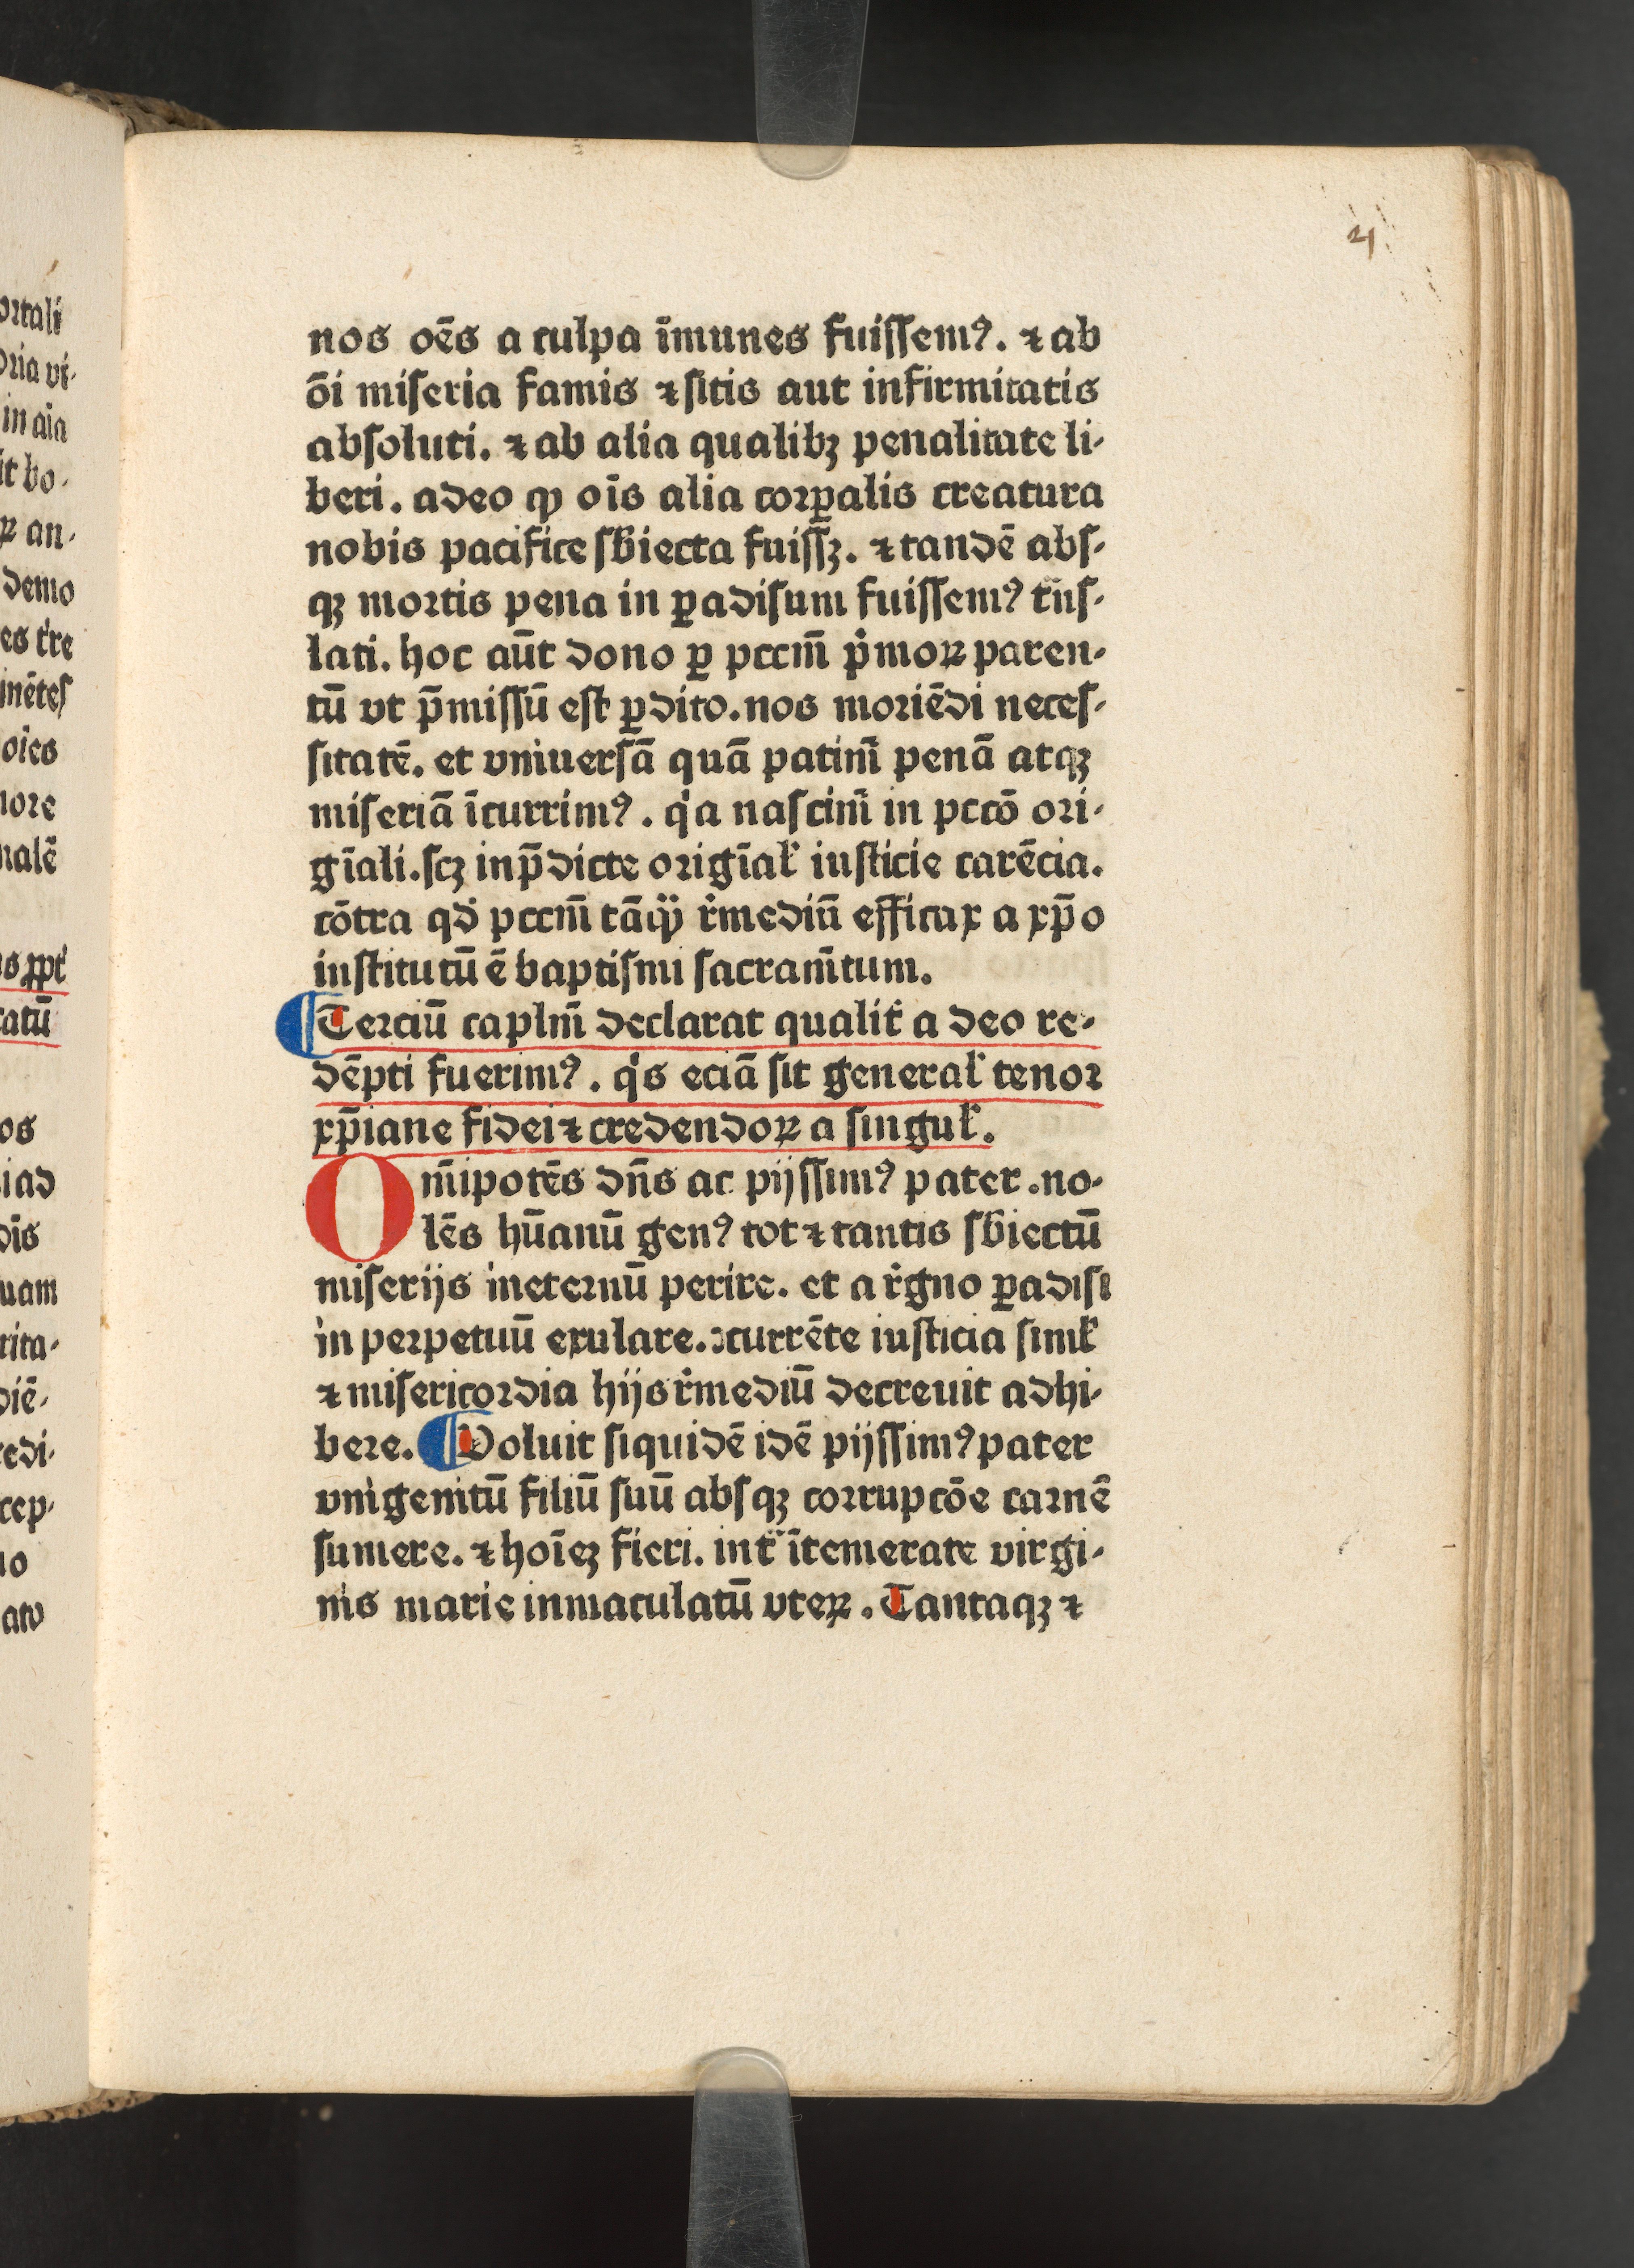 4
nos oēs a culpa īmunes fuiſſemꝰ. ⁊ ab
ōi miſeria famis ⁊ ſitis aut infirmitatis
abſoluti. ⁊ ab alia qualibꝫ penalitate li-
beri. adeo ꝙ oīs alia corꝑalis creatura
nobis pacifice ſb̄iecta fuiſſꝫ. ⁊ tandē abſ-
qꝫ mortis pena in ꝑadiſum fuiſſemꝰ tn̄ſ-
lati. hoc aūt dono ꝑ pccm̄ pͥmoꝝ paren-
tū vt p̄miſſū eſt ꝑdito. nos moriēdi neceſ-
ſitatē. et vniuerſā quā patim̄ penā atqꝫ
miſeriā īcurrimꝰ. qͥa naſcim̄ in pccō ori-
gīali. ſcꝫ in p̄dicte origīaƚ iuſticie carēcia.
cōtra qd̓ pccm̄ tāꝙ̄ r̓mediū efficax a xp̄o
inſtitutū ē baptiſmi ſacram̄tum.
¶ Terciū caplm̄ declarat qualit̓ a deo re-
dēpti fuerimꝰ. qͥs eciā ſit generaƚ tenor
xp̄iane fidei ⁊ credendoꝝ a ſinguƚ.
Om̄ipotēs dn̄s ac pijſſimꝰ pater. no-
lēs hūanū genꝰ tot ⁊ tantis ſb̄iectū
miſerijs ineternū perire. et a r̓gno ꝑadiſi
in perpetuū exulare. ↄcurrēte iuſticia ſimƚ
⁊ miſericordia hijs r̓mediū decreuit adhi-
bere. ¶ Voluit ſiquidē idē pijſſimꝰ pater
vnigenitū filiū ſuū abſqꝫ corrupcōe carnē
ſumere. ⁊ hoīeꝫ fieri. int̓ ītemerate virgi-
nis marie inmaculatū vteꝝ. Tantaqꝫ ⁊